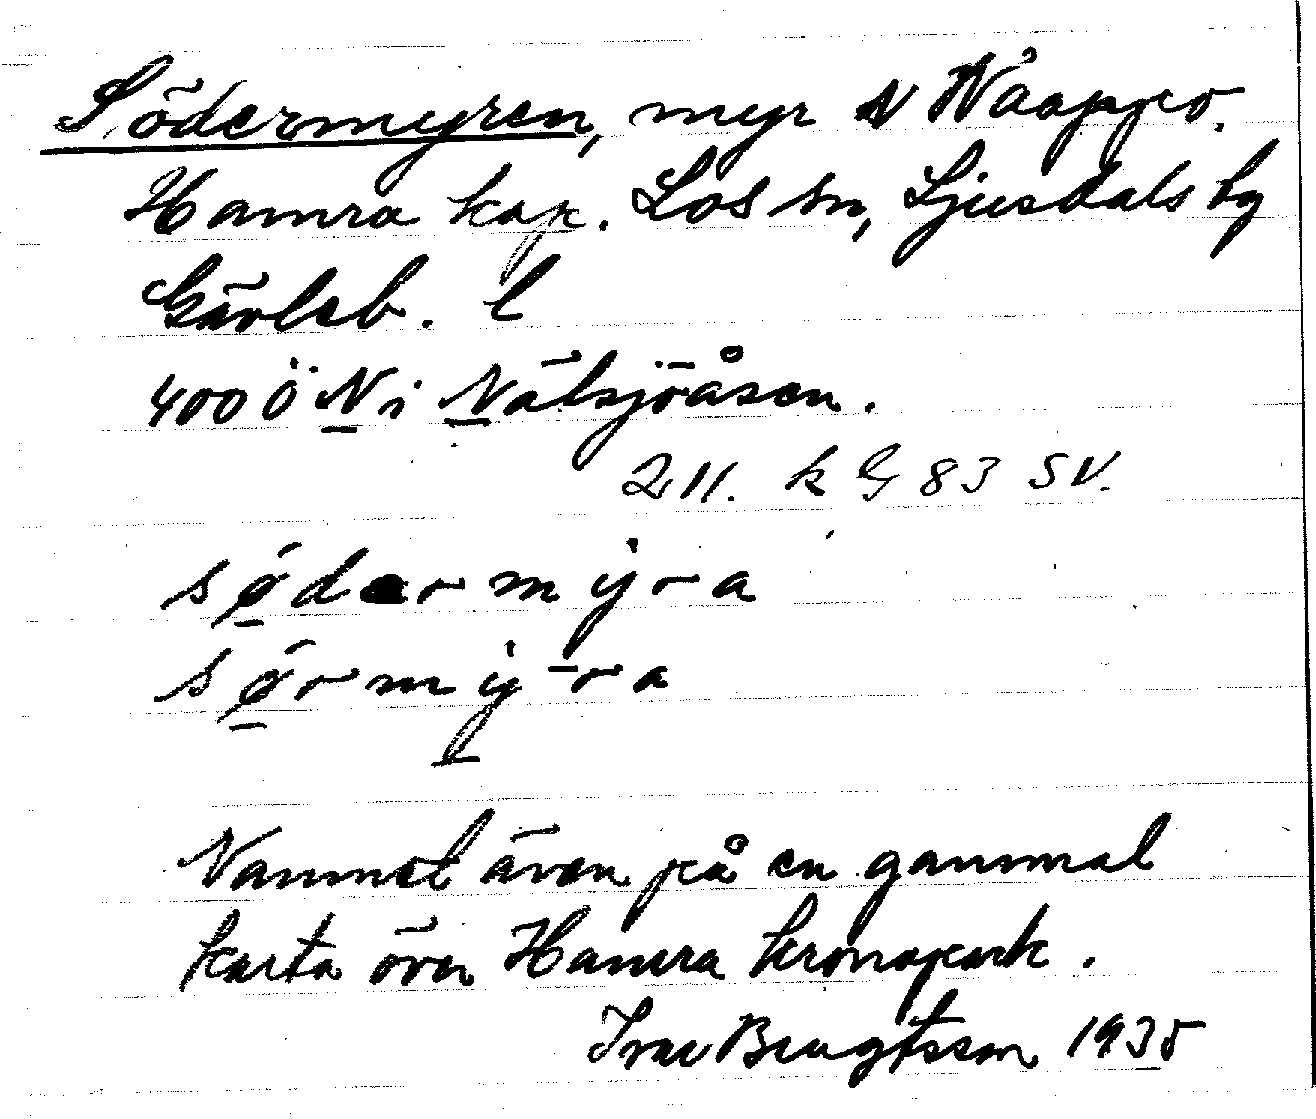 Södermyren, myr N Våoppeo.
Hamra kap. Los sn, Ljusdals tg
Gävleb. l
400 Ö N i Nätsjöåsen.
211. k G 83 SV.
sødermyra
sørmyra
Namnet även på en gammal
karta över Hamra kronopark.
Ivar Bengtsson 1935